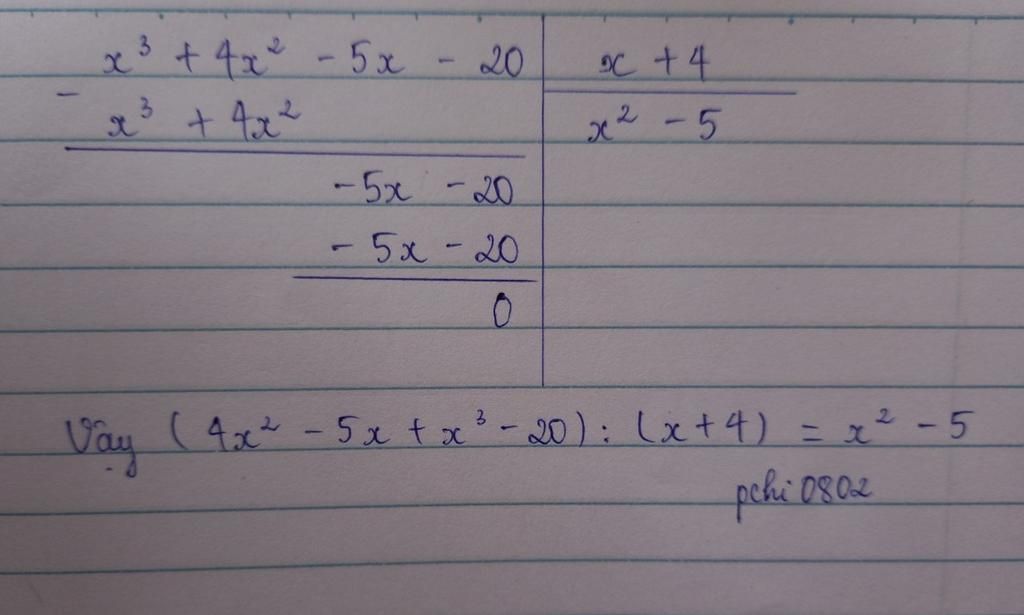 x³ + 4x² - 5x - 20 | x + 4
- x³ + 4x² | x² - 5
-5x - 20
- 5x - 20
0
Vậy (4x² - 5x + x³ - 20) : (x + 4) = x² - 5
pchi0802